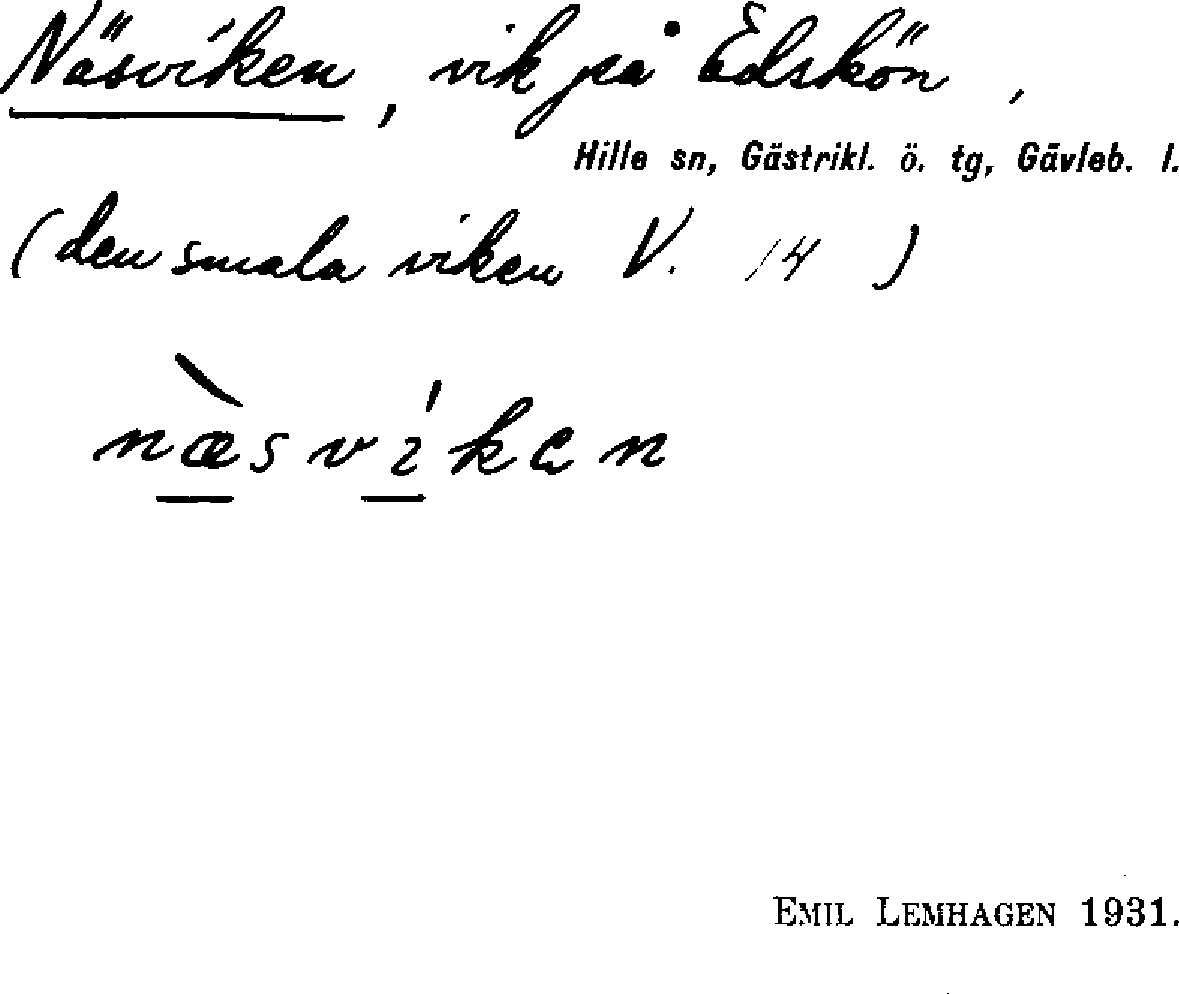 Näsviken, vik på Edskön,
Hille sn, Gästrikl. ö. tg, Gävleb. l.
(den smala viken V. 14)
næsvikən
EMIL LEMHAGEN 1931.